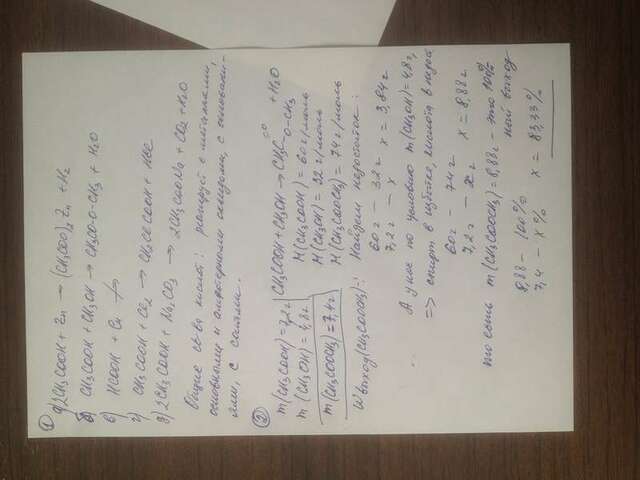 ①
а) 2CH₃COOH + Zn → (CH₃COO)₂Zn + H₂
б) CH₃COOH + CH₃OH → CH₃CO-O-CH₃ + H₂O
в) HCOOH + Cu ↛
г) CH₃COOH + Cl₂ → CH₂ClCOOH + HCl
д) 2CH₃COOH + Na₂CO₃ → 2CH₃COONa + CO₂ + H₂O
Общие св-ва кислот: реагируют с металлами,
основными и амфотерными оксидами, с основани-
ями, с солями.
②
m(CH₃COOH) = 7,2г
m(CH₃OH) = 4,8г
m(CH₃COOCH₃) = 7,4г
W выход(CH₃COOCH₃)-?
CH₃COOH + CH₃OH → CH₃C=O O-CH₃ + H₂O
M(CH₃COOH) = 60 г/моль
M(CH₃OH) = 32 г/моль
M(CH₃COOCH₃) = 74 г/моль
Найдем недостаток:
60г - 32г
7,2г - x x = 3,84г
А у нас по условию m(CH₃OH) = 4,8г,
=> спирт в избытке, кислота в недос
60г - 74г
7,2г - xг x = 8,88г
то есть m(CH₃COOCH₃) = 8,88г - это 100%
ный выход
8,88 - 100%
7,4 - x% x = 83,33%